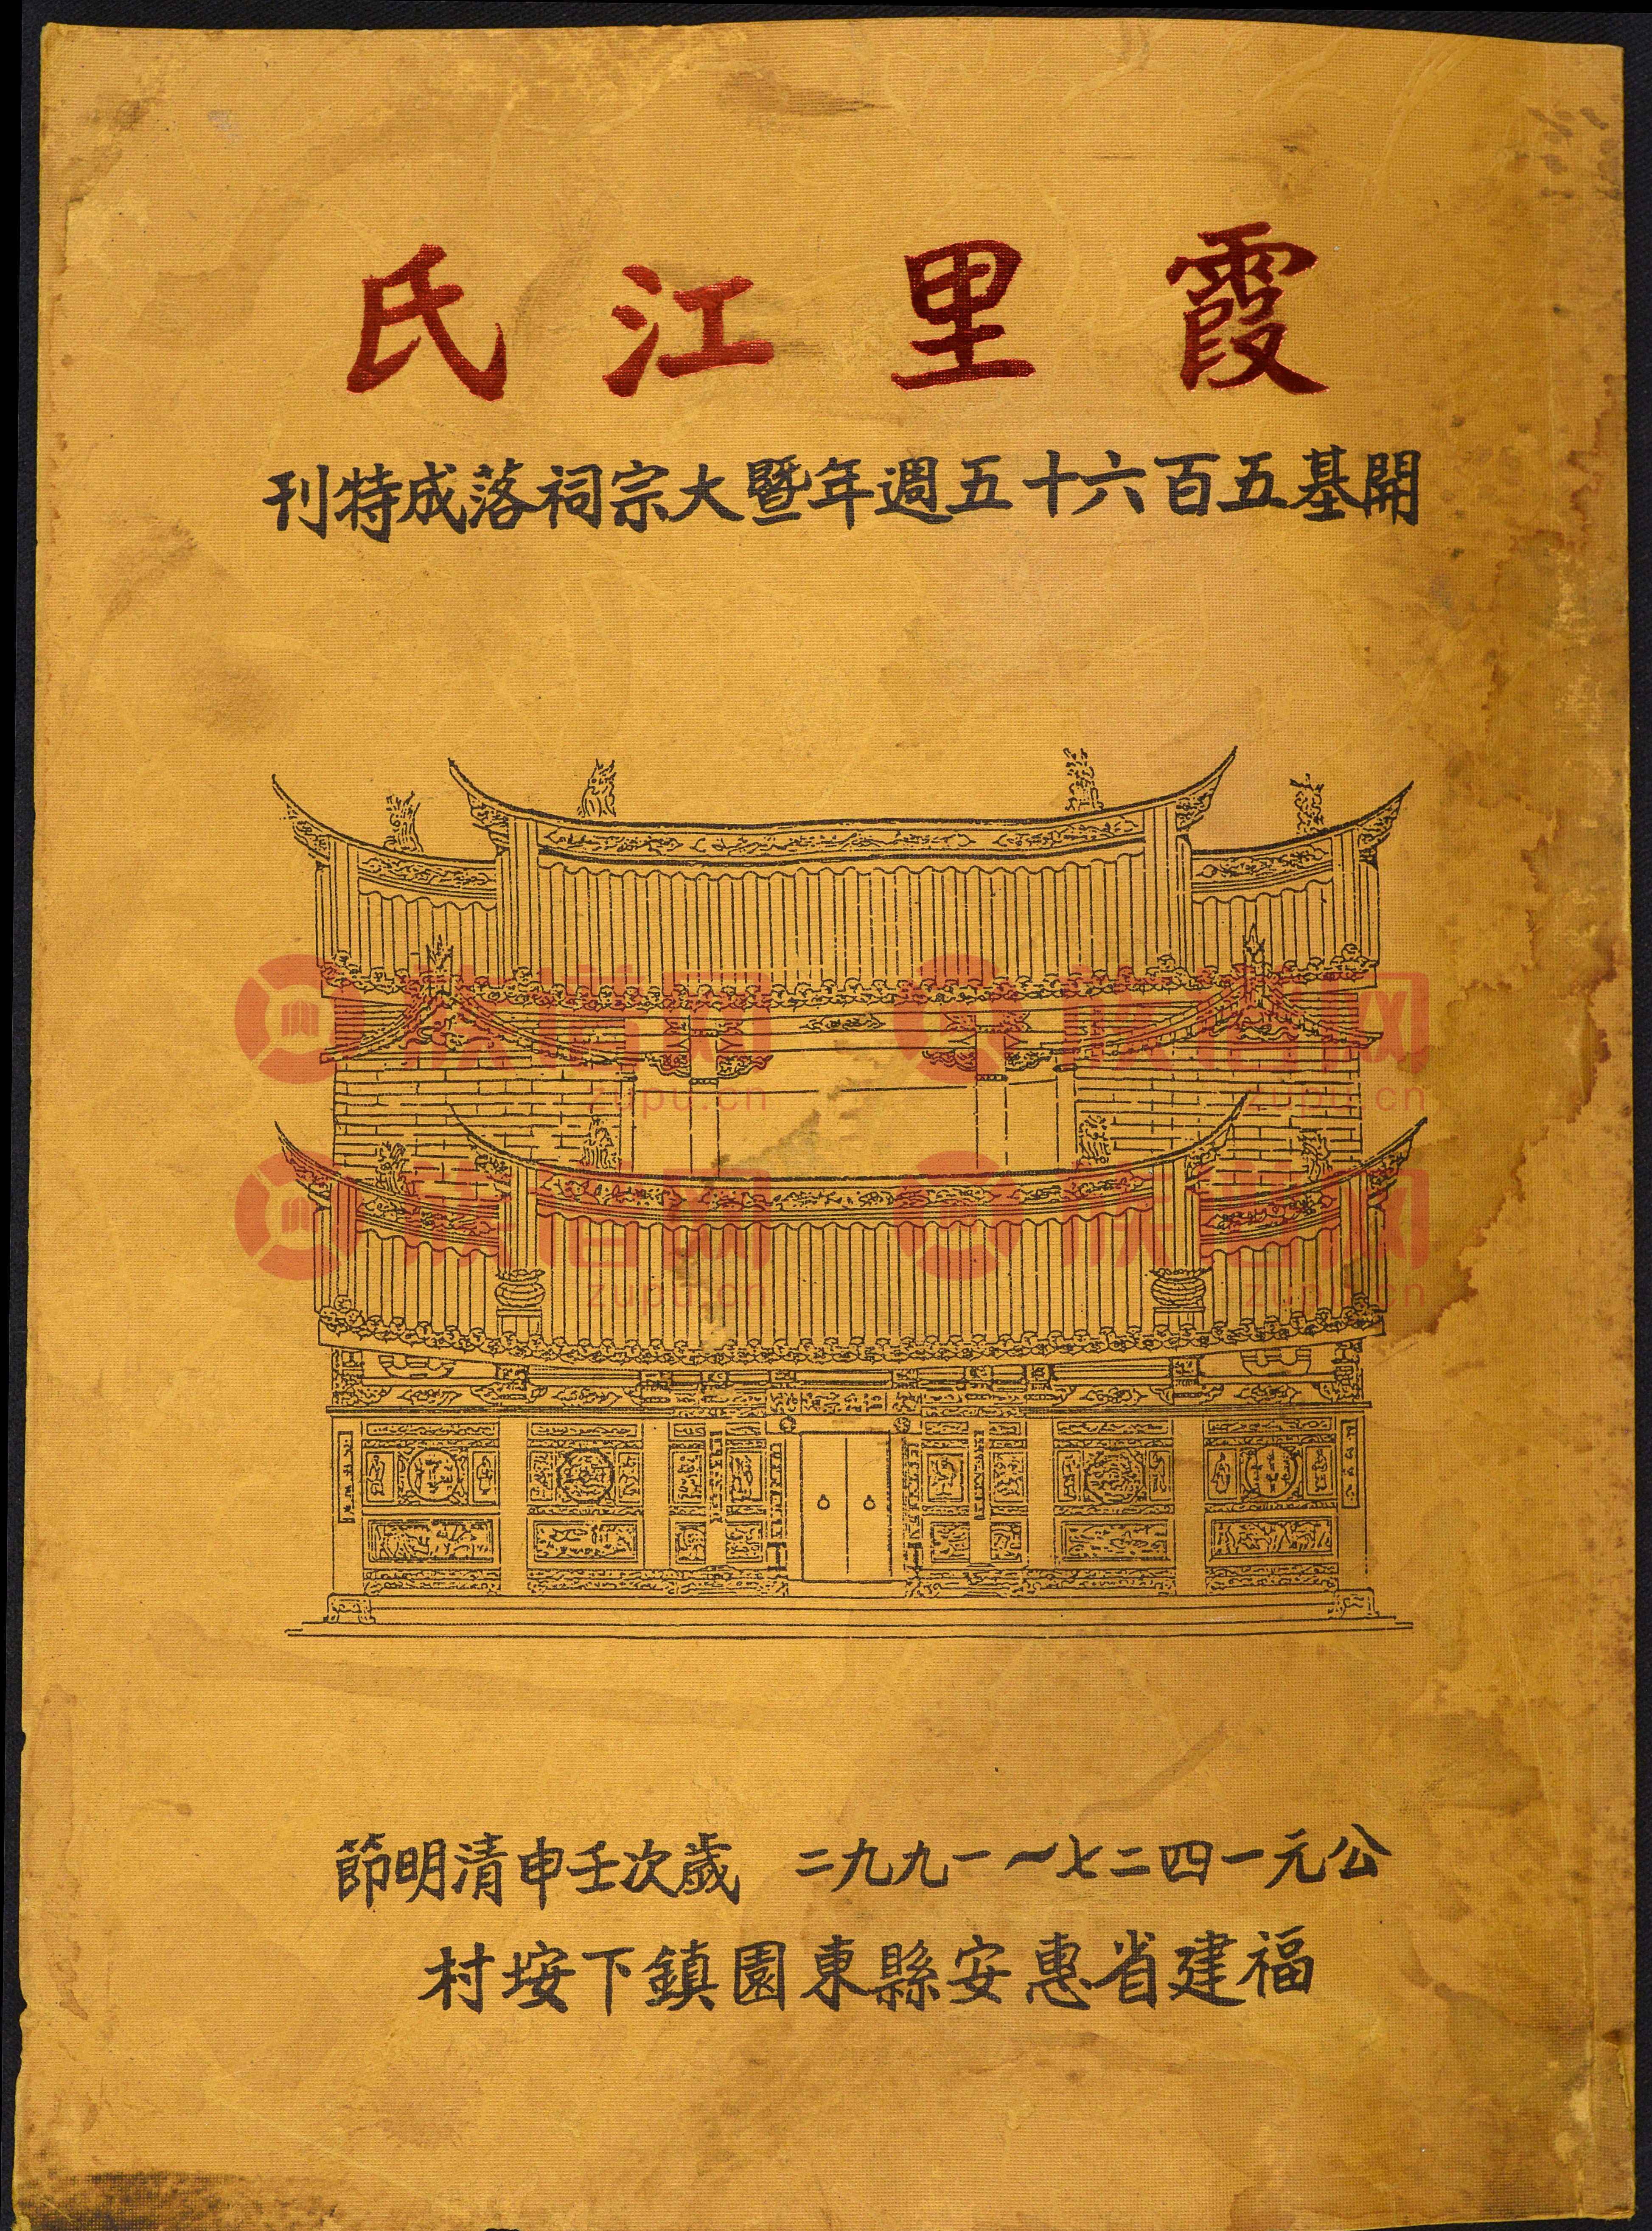 霞里江氏
開基五百六十五週年暨大宗祠落成特刊
族谱网 族谱网
zupu.cn zupu.cn
族谱网 族谱网
zupu.cn zupu.cn
公元一四二七~一九九二 歲次壬申清明節
福建省惠安縣東園鎮下垵村